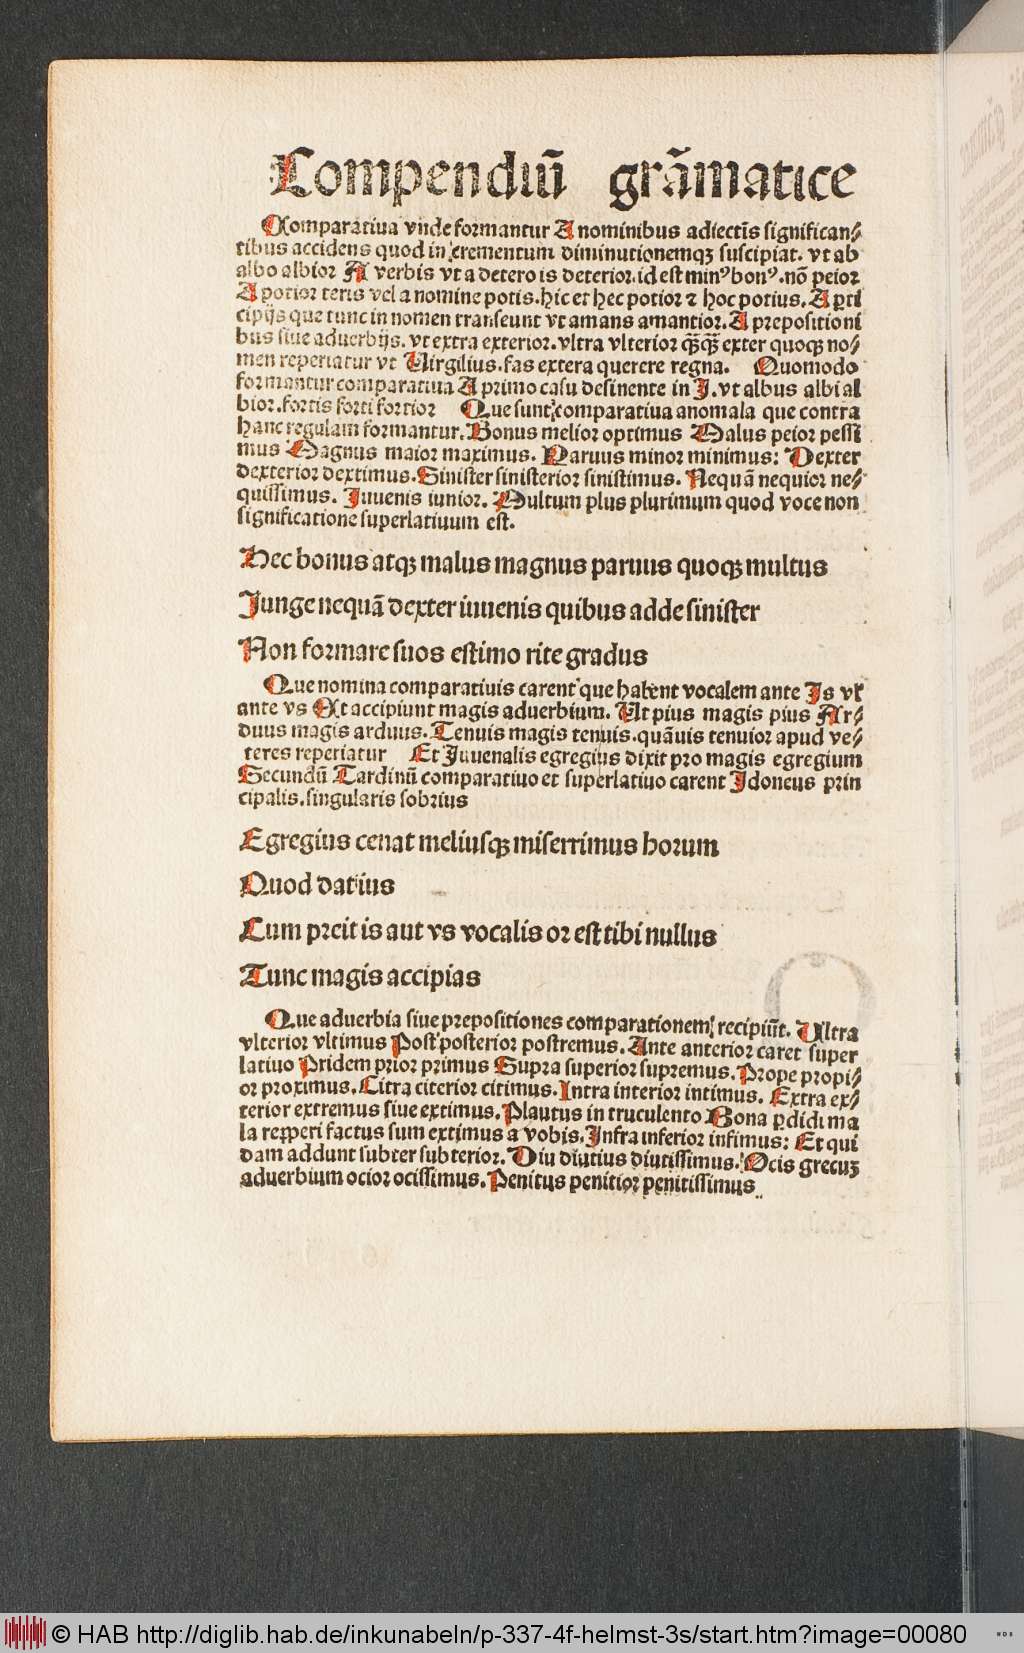 Compendiū grāmatice
Comparatiua vnde formantur A nominibus adiectīs significan⸗
tibus accidens quod in crementum diminutionemqꝫ suscipiat. vt ab
albo albior A verbis vt a detero is deterior. id est minꝰ bonꝰ. nō peior
A potior teris vel a nomine potis. hic et hec potior ⁊ hoc potius. A ꝑti
cipijs que tunc in nomen transeunt vt amans amantior. A prepositioni
bus siue aduerbijs. vt extra exterior. vltra vlterior qꝫ̄qꝫ̄ exter quoqꝫ no⸗
men reperiatur vt Virgilius. fas extera querere regna. Quomodo
formantur comparatiua A primo casu desinente in I. vt albus albi al
bior. fortis forti fortior Que sunt comparatiua anomala que contra
hanc regulam formantur. Bonus melior optimus Malus peior pessi
mus Magnus maior maximus. Paruus minor minimus: Dexter
dexterior dextimus. Sinister sinisterior sinistimus. Nequā nequior ne⸗
quissimus. Iuuenis iunior. Multum plus plurimum quod voce non
significatione superlatiuum est.
Hec bonus atqꝫ malus magnus paruus quoqꝫ multus
Iunge nequā dexter iuuenis quibus adde sinister
Non formare suos estimo rite gradus
Que nomina comparatiuis carent que habent vocalem ante Is vl
ante vs Et accipiunt magis aduerbium. Vt pius magis pius Ar⸗
duus magis arduus. Tenuis magis tenuis. quāuis tenuior apud ve⸗
teres reperiatur Et Iuuenalis egregius dixit pro magis egregium
Secundū Tardinū comparatiuo et superlatiuo carent Idoneus prin
cipalis. singularis sobrius
Egregius cenat meliusqꝫ miserrimus horum
Quod datius
Cum preit is aut vs vocalis or est tibi nullus
Tunc magis accipias
Que aduerbia siue prepositiones comparationem recipiūt. Vltra
vlterior vltimus Post posterior postremus. Ante anterior caret super
latiuo Pridem prior primus Supra superior supremus. Prope propi⸗
or proximus. Citra citerior citimus. Intra interior intimus. Extra ex⸗
terior extremus siue extimus. Plautus in truculento Bona ꝑdidi ma
la reꝑperi factus sum extimus a vobis. Infra inferior infimus: Et qui
dam addunt subter subterior. Diu diutius diutissimus. Ocis grecuꝫ
aduerbium ocior ocissimus. Penitus penitior penitissimus
© HAB http://diglib.hab.de/inkunabeln/p-337-4f-helmst-3s/start.htm?image=00080